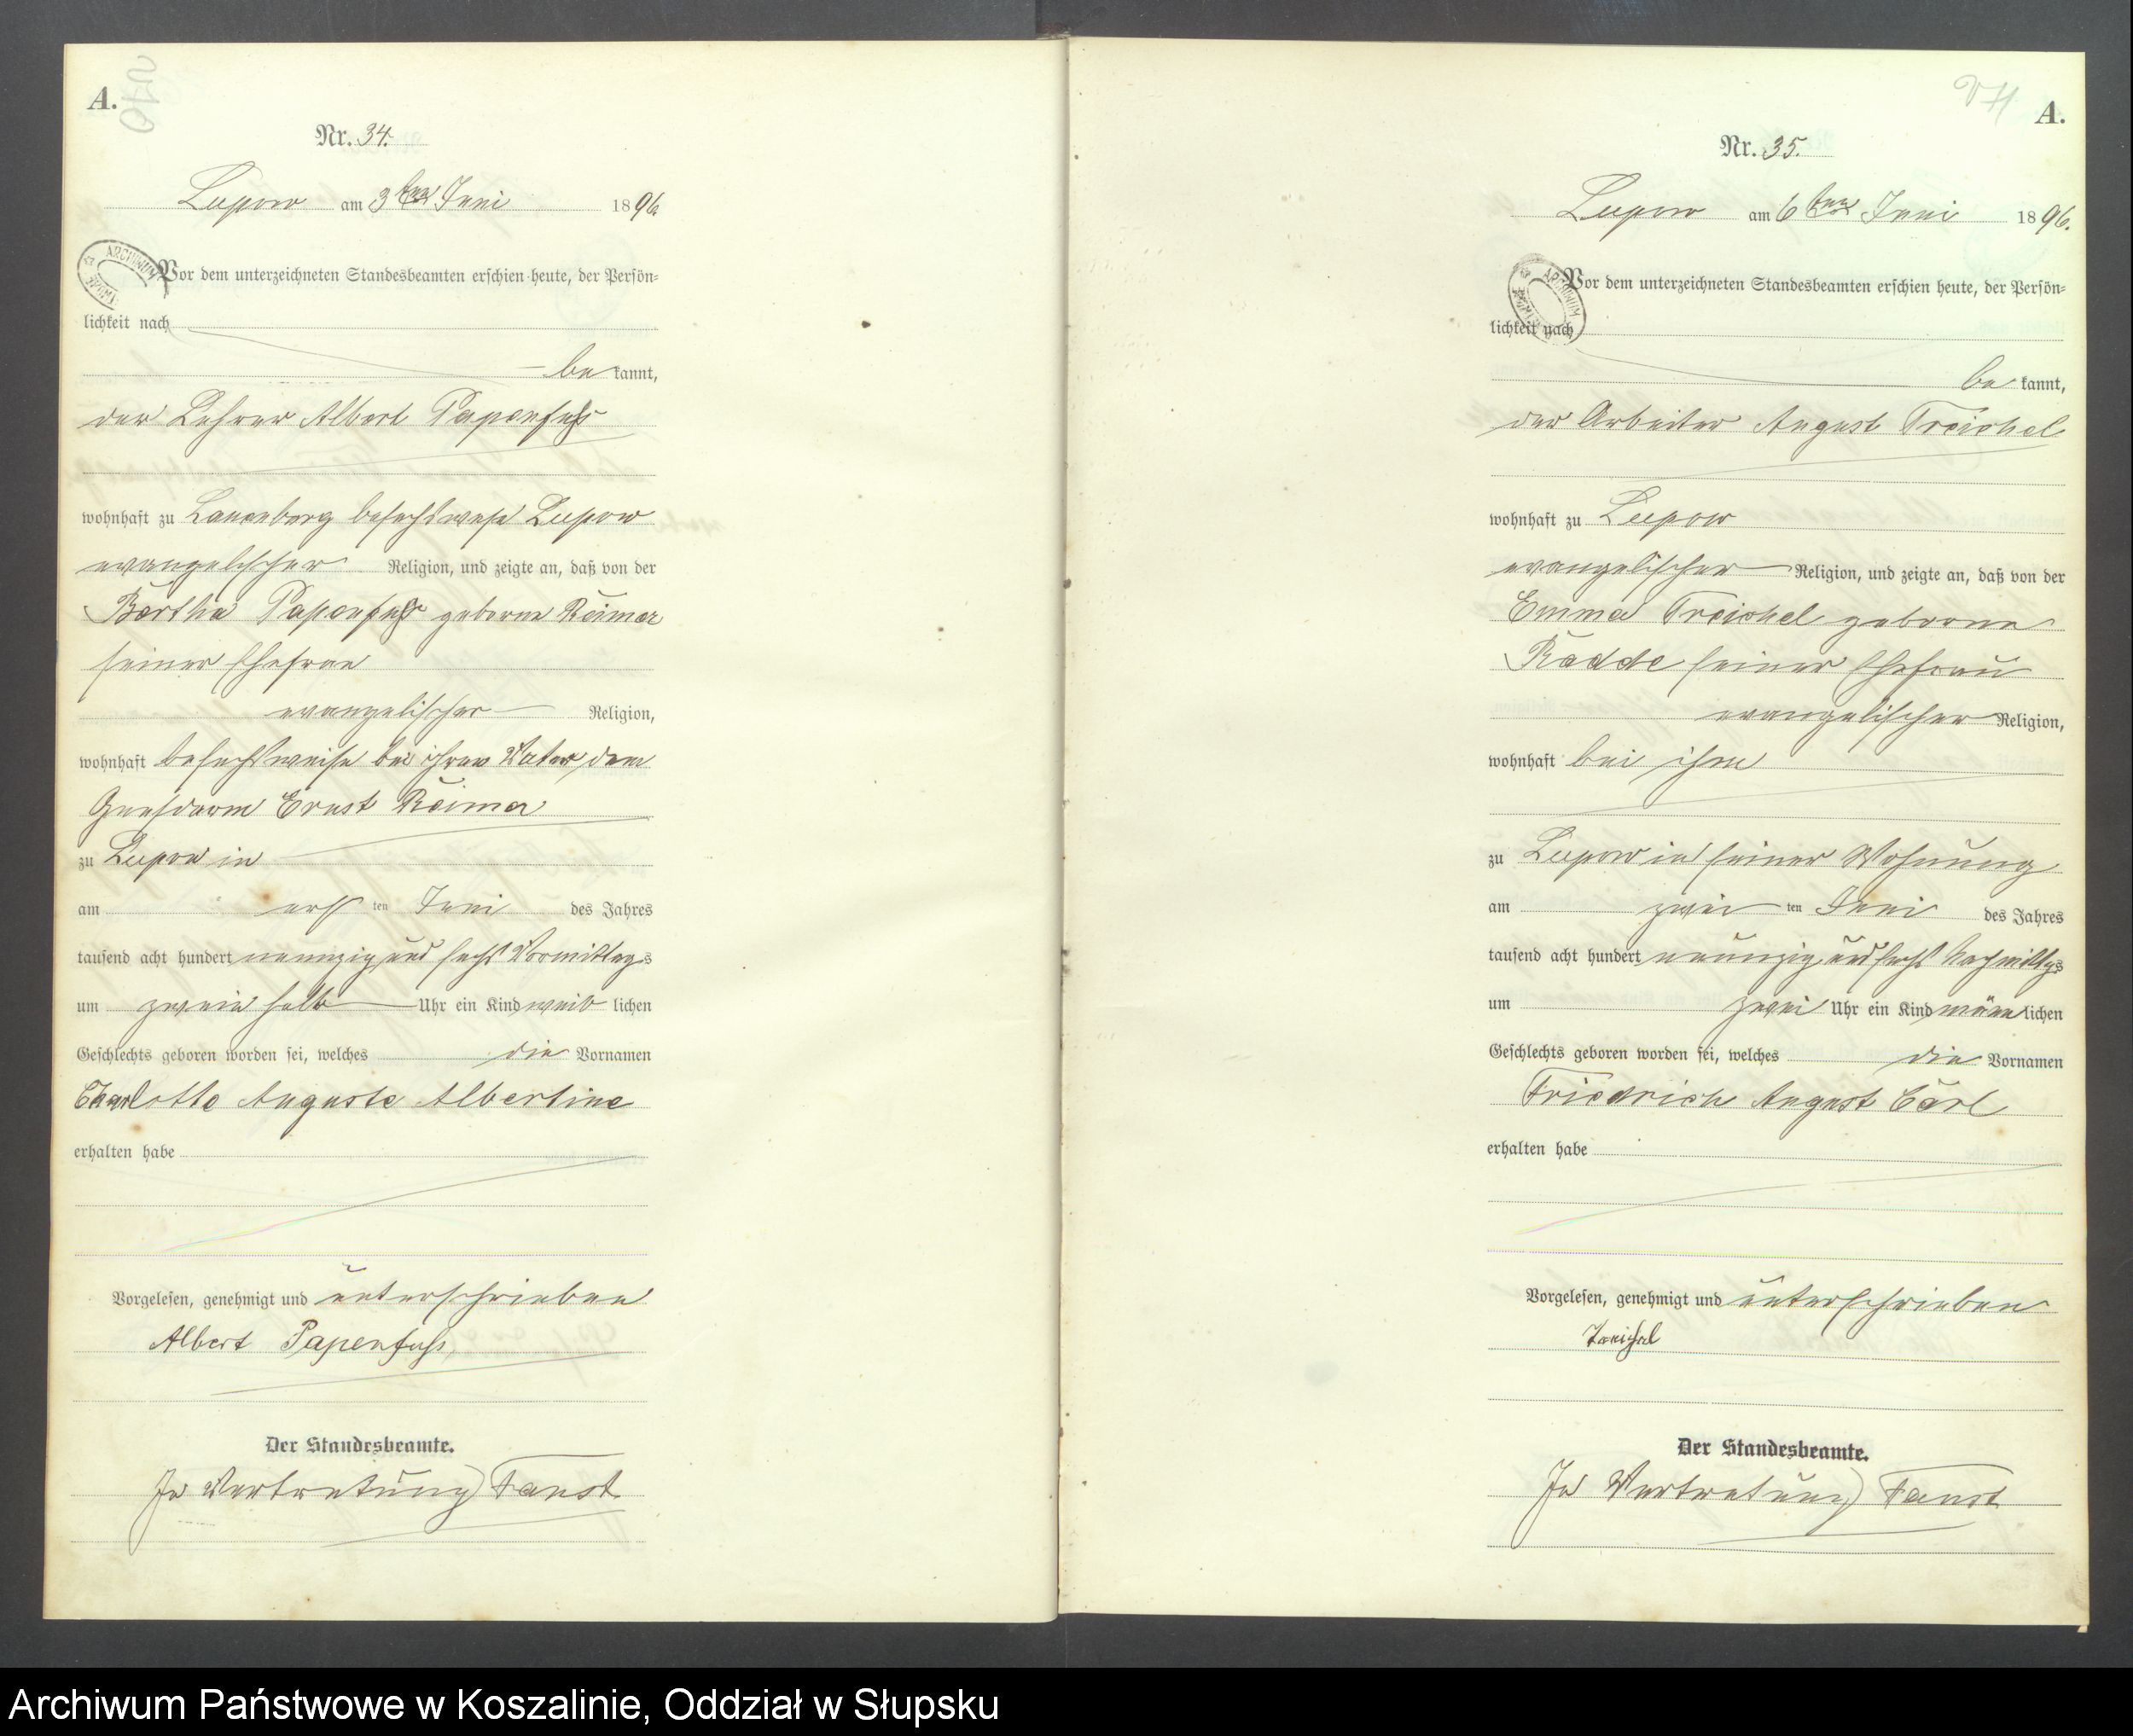 A.
Nr. 34.
Lupow am 3ten Juni 1896
ARCHIWUM
Vor dem unterzeichneten Standesbeamten erschien heute, der Persön=
lichkeit nach
be kannt,
der Lehrer Albert Papenfuß
wohnhaft zu Lauenburg besuchsweise Lupow
evangelischer Religion, und zeigte an, daß von der
Bertha Papenfuß geborne Reimer
seiner Ehefrau
evangelischer Religion,
wohnhaft besuchsweise bei ihrem Vater, dem
Gensdarm Ernst Reimer
zu Lupow in
am ersten Juni des Jahres
tausend acht hundert neunzig und sechs Vormittags
um zwei halb Uhr ein Kind weib lichen
Geschlechts geboren worden sei, welches die Vornamen
Charlotte Auguste Albertine
erhalten habe
Vorgelesen, genehmigt und unterschrieben
Albert Papenfuß
Der Standesbeamte.
In Vertretung Faust
A.
Nr. 35.
Lupow am 6ten Juni 1896.
ARCHIWUM
Vor dem unterzeichneten Standesbeamten erschien heute, der Persön=
lichkeit nach
be kannt,
der Arbeiter August Treichel
wohnhaft zu Lupow
evangelischer Religion, und zeigte an, daß von der
Emma Treichel geborne
Radde seiner Ehefrau
evangelischer Religion,
wohnhaft bei ihm
zu Lupow in seiner Wohnung
am zweiten Juni des Jahres
tausend acht hundert neunzig und sechs Nachmittgs
um zwei Uhr ein Kind männlichen
Geschlechts geboren worden sei, welches die Vornamen
Friedrich August Carl
erhalten habe
Vorgelesen, genehmigt und unterschrieben
Treichel
Der Standesbeamte.
In Vertretung Faust
Archiwum Państwowe w Koszalinie, Oddział w Słupsku